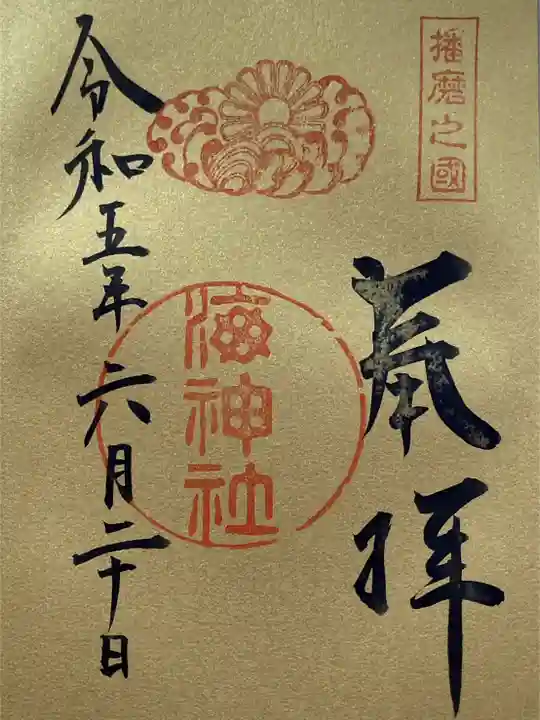 播磨之國
奉拝
海神社
令和五年 六月二十日